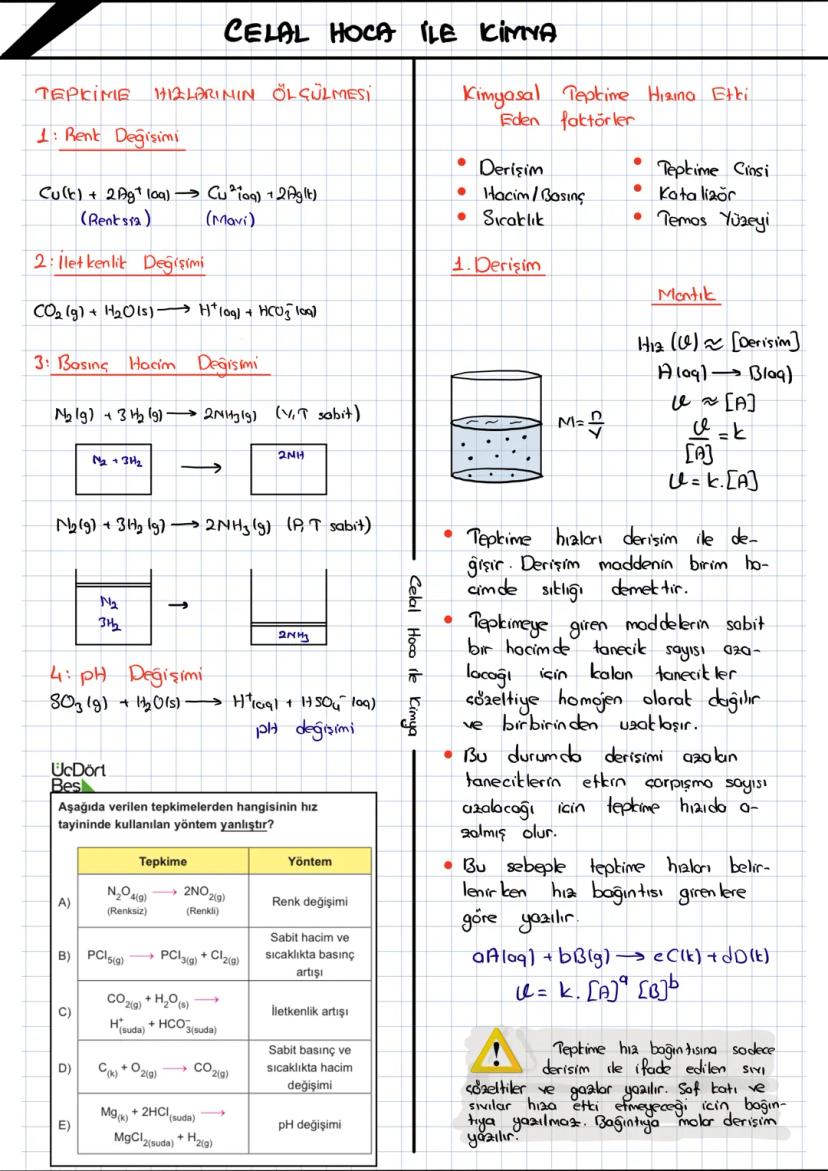 CELAL HOCA İLE KİMYA
TEPKİME HIZLARININ ÖLÇÜLMESİ
1: Renk Değişimi
Cu(k) + 2Ag⁺(aq) → Cu²⁺(aq) + 2Ag(k)
(Renksiz) (Mavi)
2: İletkenlik Değişimi
CO₂(g) + H₂O(s) → H⁺(aq) + HCO₃⁻(aq)
3: Basınç Hacim Değişimi
N₂(g) + 3H₂(g) → 2NH₃(g) (V,T sabit)
N₂ + 3H₂ → 2NH
N₂(g) + 3H₂(g) → 2NH₃(g) (P,T sabit)
N₂ →
3H₂ 2NH₃
4: pH Değişimi
SO₃(g) + H₂O(s) → H⁺(aq) + HSO₄⁻(aq)
pH değişimi
ÜçDört
Beş
Aşağıda verilen tepkimelerden hangisinin hız
tayininde kullanılan yöntem yanlıştır?
Tepkime Yöntem
A) N₂O₄(g) → 2NO₂(g) Renk değişimi
(Renksiz) (Renkli)
B) PCl₅(g) → PCl₃(g) + Cl₂(g) Sabit hacim ve
sıcaklıkta basınç
artışı
C) CO₂(g) + H₂O(s) → İletkenlik artışı
H⁺(suda) + HCO₃⁻(suda)
D) C(k) + O₂(g) → CO₂(g) Sabit basınç ve
sıcaklıkta hacim
değişimi
E) Mg(k) + 2HCl(suda) → pH değişimi
MgCl₂(suda) + H₂(g)
Celal Hoca ile Kimya
Kimyasal Tepkime Hızına Etki
Eden faktörler
• Derişim • Tepkime Cinsi
• Hacim/Basınç • Katalizör
• Sıcaklık • Temas Yüzeyi
1. Derişim
Mantık
Hız (υ) ≈ [Derişim]
A(aq) → B(aq)
υ ≈ [A]
M = n/V
υ/[A] = k
υ = k.[A]
• Tepkime hızları derişim ile de-
ğişir. Derişim maddenin birim ha-
cimde sıklığı demektir.
• Tepkimeye giren maddelerin sabit
bir hacimde tanecik sayısı aza-
lacağı için kalan tanecikler
çözeltiye homojen olarak dağılır
ve birbirinden uzaklaşır.
• Bu durumda derişimi azalan
taneciklerin etkin çarpışma sayısı
azalacağı için tepkime hızıda a-
zalmış olur.
• Bu sebeple tepkime hızları belir-
lenirken hız bağıntısı girenlere
göre yazılır.
aA(aq) + bB(g) → cC(k) + dD(k)
υ = k.[A]ᵃ [B]ᵇ
Tepkime hız bağıntısına sadece
derişim ile ifade edilen sıvı
çözeltiler ve gazlar yazılır. Saf katı ve
sıvılar hıza etki etmeyeceği için bağın-
tıya yazılmaz. Bağıntıya molar derişim
yazılır.